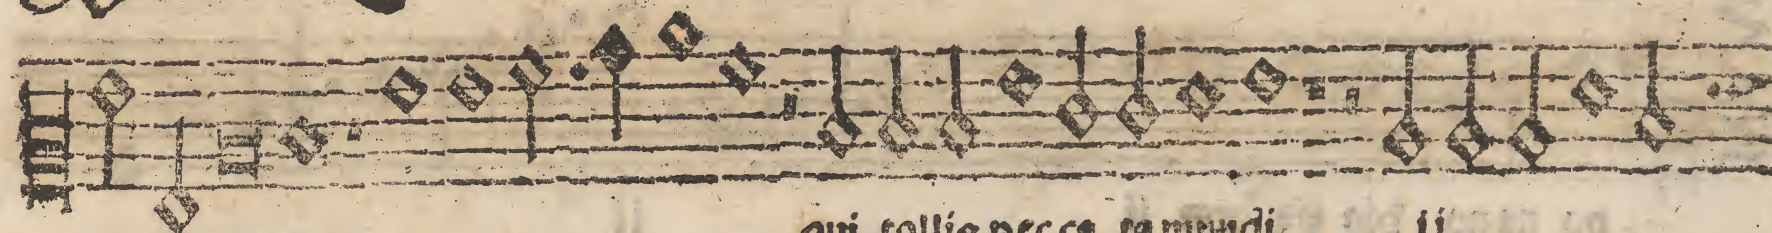 qui tollis pecca ta mundi ii